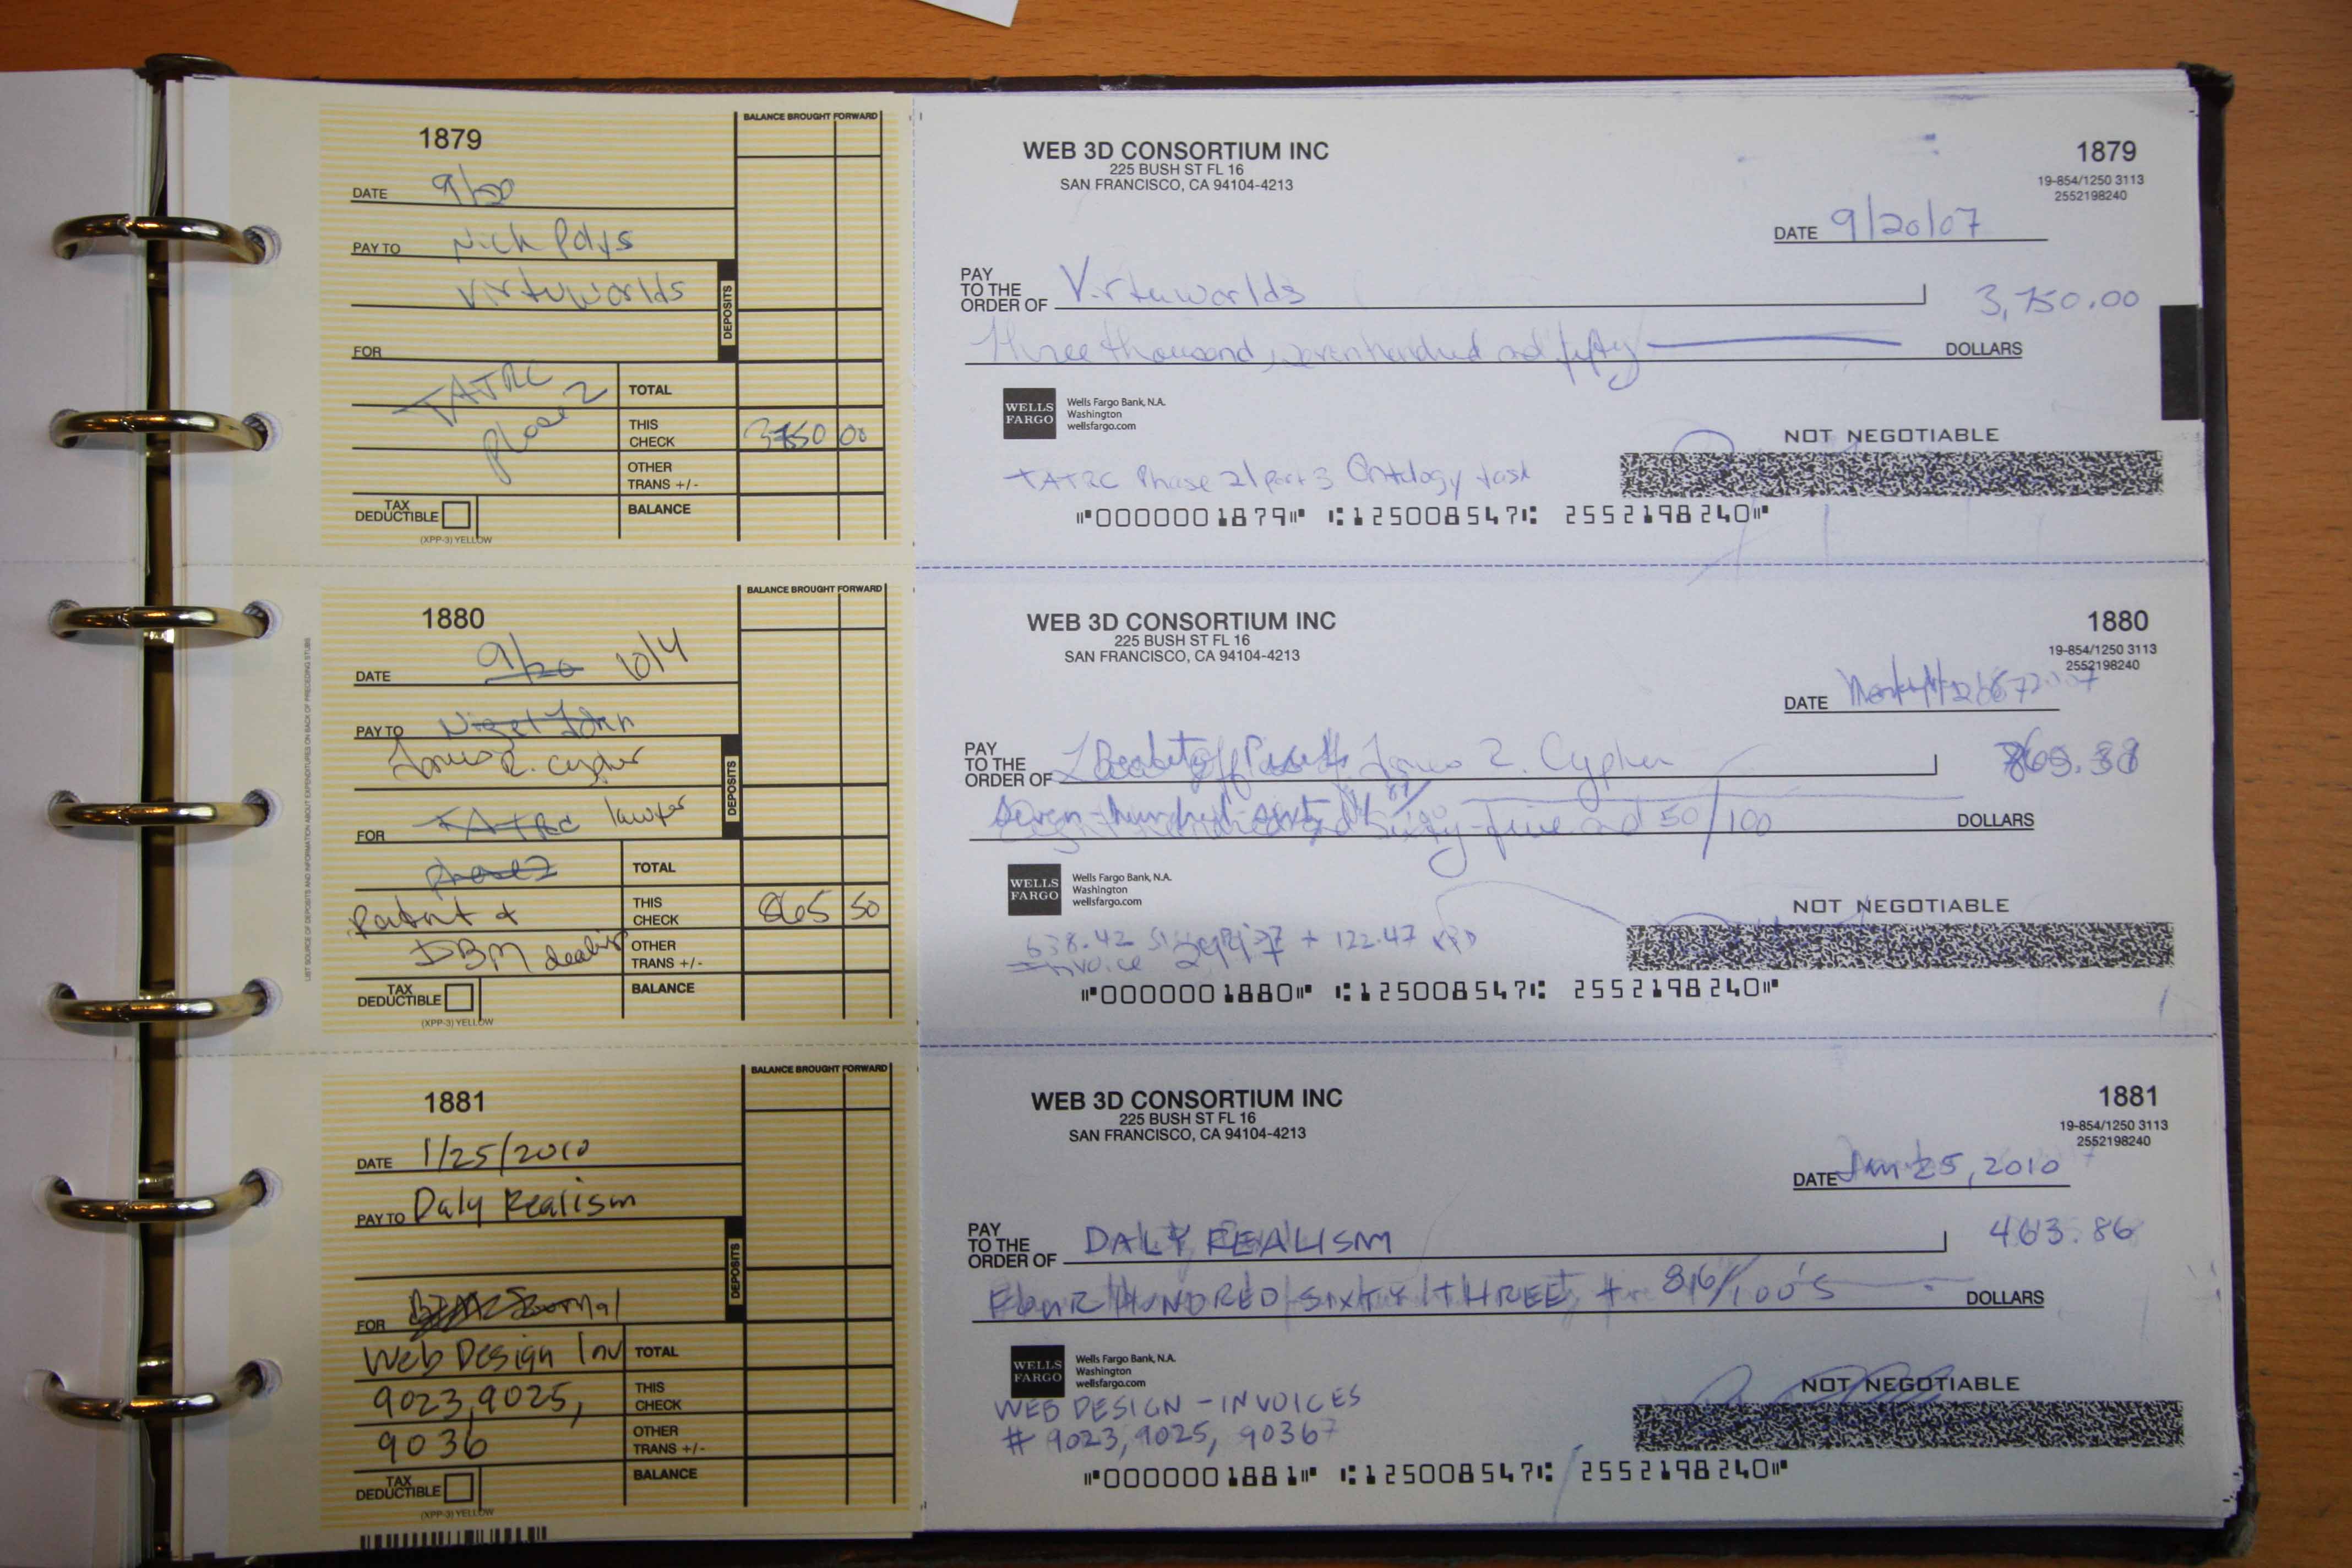 1879
BALANCE BROUGHT FORWARD
DATE 9/20
PAY TO Nick Polys
Virtuworlds
DEPOSITS
FOR
TATRC
Phase 2
TOTAL
THIS CHECK 3750 00
OTHER TRANS +/-
TAX DEDUCTIBLE
BALANCE
(XPP-3) YELLOW
WEB 3D CONSORTIUM INC
225 BUSH ST FL 16
SAN FRANCISCO, CA 94104-4213
1879
19-854/1250 3113
2552198240
DATE 9/20/07
PAY TO THE ORDER OF Virtuworlds 3,750.00
Three thousand, seven hundred and fifty DOLLARS
WELLS FARGO
Wells Fargo Bank, N.A.
Washington
wellsfargo.com
NOT NEGOTIABLE
TATRC Phase 2 part 3 Ontology task
⑈0000001879⑈ ⑆125008547⑆ 2552198240⑈
LIST SOURCE OF DEPOSITS AND INFORMATION ABOUT EXPENDITURES ON BACK OF PRECEDING STUBS.
1880
BALANCE BROUGHT FORWARD
DATE 9/20 10/4
PAY TO Nigel John
James R. Cypher
DEPOSITS
FOR TATRC lawyer
Phase 2
Patent &
DBM
TOTAL
THIS CHECK 865 50
OTHER TRANS +/-
TAX DEDUCTIBLE
BALANCE
(XPP-3) YELLOW
WEB 3D CONSORTIUM INC
225 BUSH ST FL 16
SAN FRANCISCO, CA 94104-4213
1880
19-854/1250 3113
2552198240
DATE
PAY TO THE ORDER OF James R. Cypher
sixty-five and 50/100 DOLLARS
WELLS FARGO
Wells Fargo Bank, N.A.
Washington
wellsfargo.com
NOT NEGOTIABLE
638.42 + 122.47
Invoice
⑈0000001880⑈ ⑆125008547⑆ 2552198240⑈
1881
BALANCE BROUGHT FORWARD
DATE 1/25/2010
PAY TO Daly Realism
DEPOSITS
FOR
Web Design Inv
9023, 9025,
9036
TOTAL
THIS CHECK
OTHER TRANS +/-
TAX DEDUCTIBLE
BALANCE
(XPP-3) YELLOW
WEB 3D CONSORTIUM INC
225 BUSH ST FL 16
SAN FRANCISCO, CA 94104-4213
1881
19-854/1250 3113
2552198240
DATE Jan 25, 2010
PAY TO THE ORDER OF DALY REALISM 463.86
FOUR HUNDRED SIXTY THREE + 86/100'S DOLLARS
WELLS FARGO
Wells Fargo Bank, N.A.
Washington
wellsfargo.com
NOT NEGOTIABLE
WEB DESIGN - INVOICES
# 9023, 9025, 9036
⑈0000001881⑈ ⑆125008547⑆ 2552198240⑈